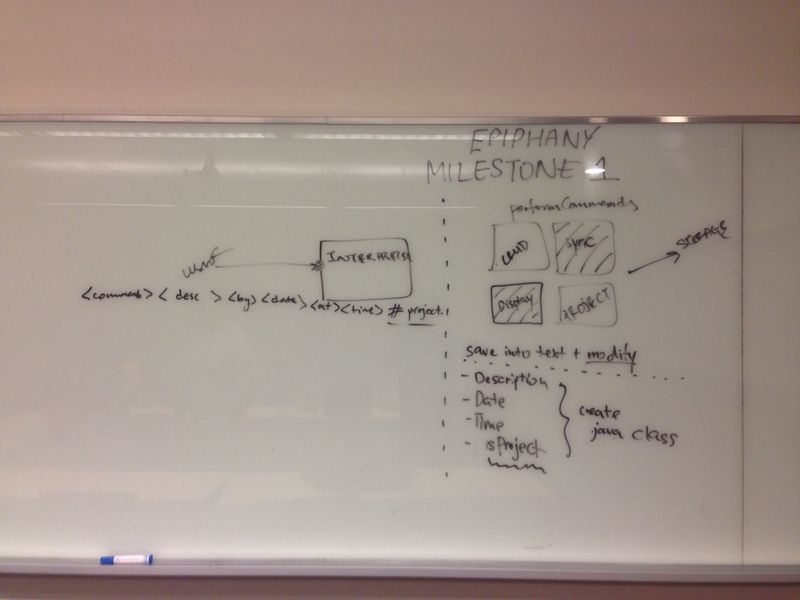 EPIPHANY
MILESTONE 1
performCommands
INTERPRETER
<command> <desc> <by> <date> <at> <time> # project.
CRUD
SYNC
STORAGE
Display
PROJECT
save into text + modify
- Description
- Date
- Time
- isProject
create
.java class